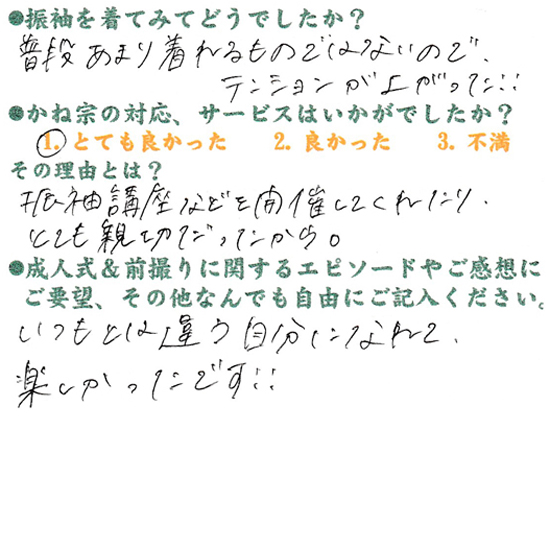 ●振袖を着てみてどうでしたか？
普段あまり着れるものではないので、
テンションが上がった!!
●かね宗の対応、サービスはいかがでしたか？
1. とても良かった 2. 良かった 3. 不満
その理由とは？
振袖講座などを開催してくれたり、
とても親切だったから。
●成人式&前撮りに関するエピソードやご感想に
ご要望、その他なんでも自由にご記入ください。
いつもとは違う自分になれて、
楽しかったです!!